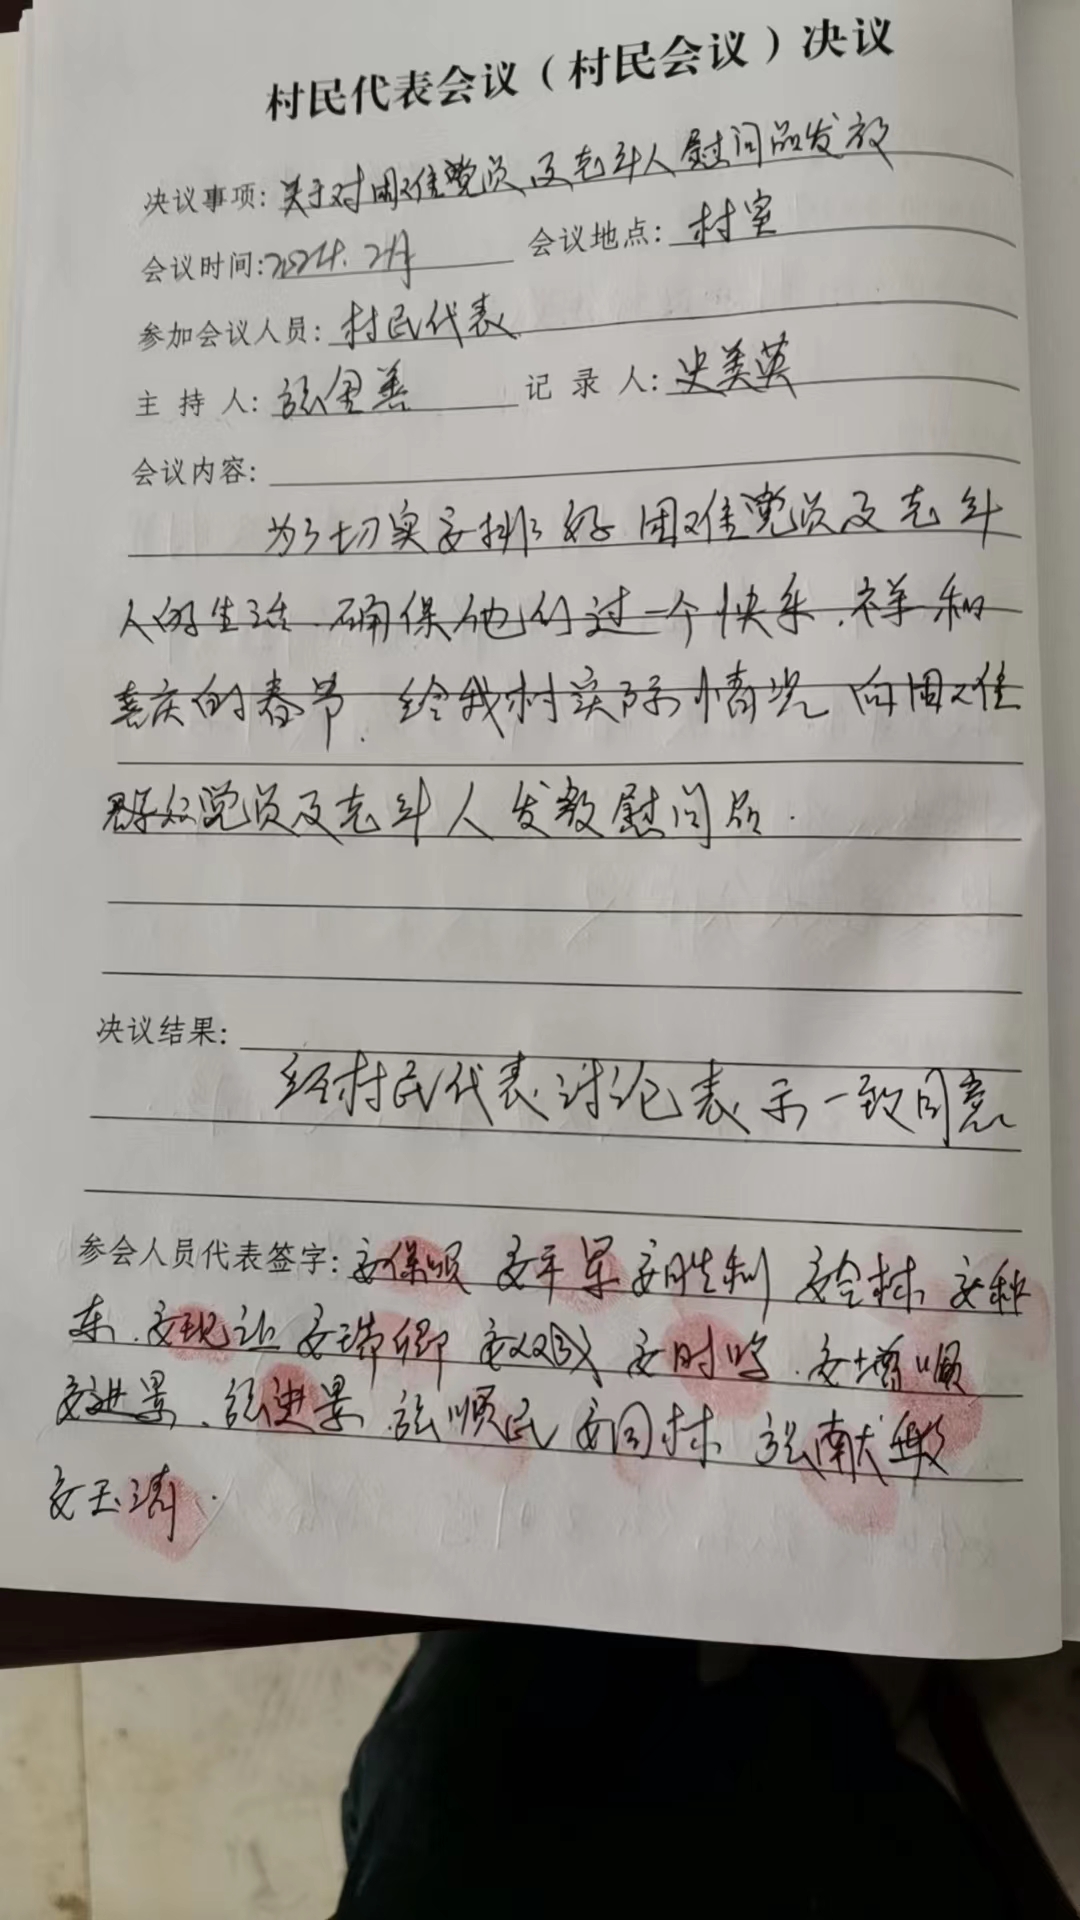 村民代表会议（村民会议）决议
决议事项：关于对困难党员及老年人慰问品发放
会议时间：2024.2月 会议地点：村室
参加会议人员：村民代表
主持人：张全善 记录人：史美英
会议内容：
为了切实安排好困难党员及老年
人的生活.确保他们过一个快乐.祥和
喜庆的春节.给我村实际情况 向困难
群众党员及老年人发放慰问品.
决议结果：
经村民代表讨论表示一致同意
参会人员代表签字：安保顺 安平 安胜利 安全林 安秋
东.安现 安瑞卿 安双成 安时 .安增顺
安进景.张进景.张顺民 安同林 张献
安玉涛.